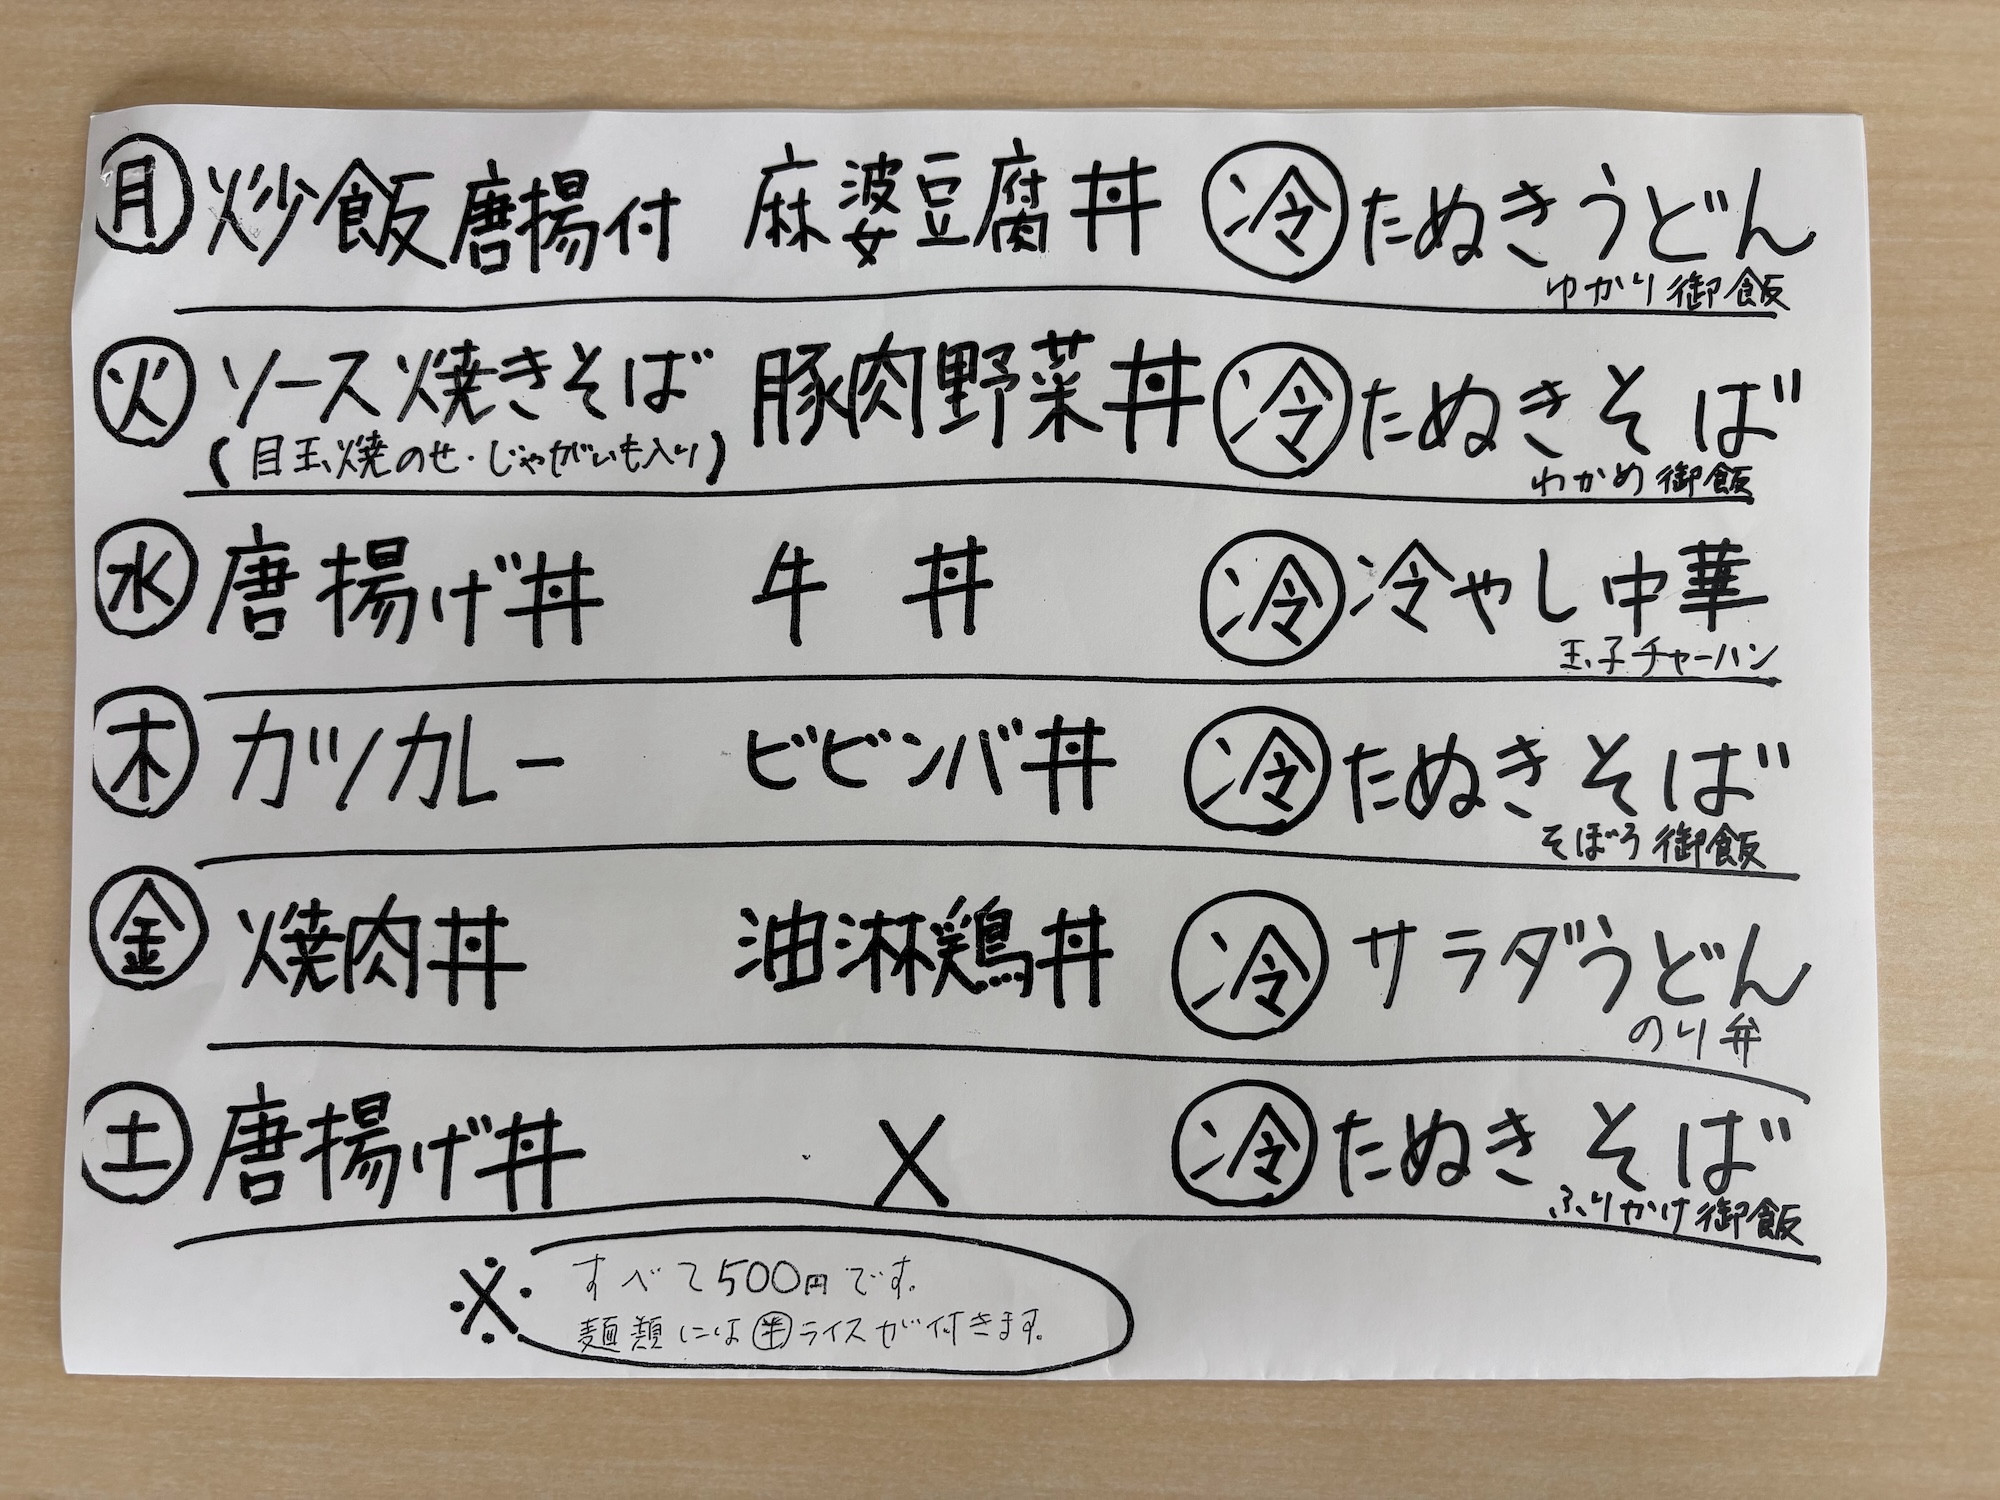 ㊊ 炒飯唐揚付 麻婆豆腐丼 ㊗冷 たぬきうどん
ゆかり御飯
㊋ ソース焼きそば 豚肉野菜丼 冷 たぬきそば
(目玉焼のせ・じゃがいも入り)
わかめ御飯
㊌ 唐揚げ丼 牛丼 冷 冷やし中華
玉子チャーハン
㊍ カツカレー ビビンバ丼 冷 たぬきそば
そぼろ御飯
㊎ 焼肉丼 油淋鶏丼 冷 サラダうどん
のり弁
㊏ 唐揚げ丼 X 冷 たぬきそば
ふりかけ御飯
※ すべて500円です。
麺類には半ライスが付きます。